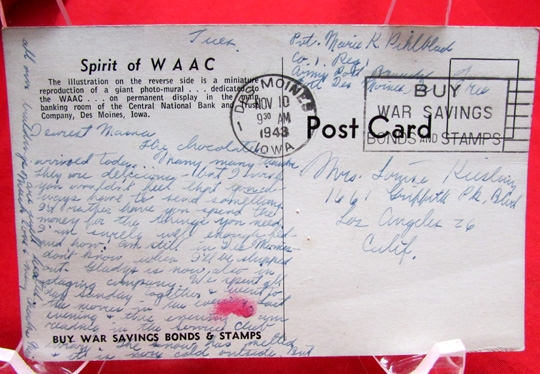 Tues.
Spirit of WAAC
The illustration on the reverse side is a miniature
reproduction of a giant photo-mural ... dedicated to
the WAAC ... on permanent display in the main
banking room of the Central National Bank and Trust
Company, Des Moines, Iowa.
Dearest Mama
The Chocolates
arrived today. Many, many thanks
They are delicious - but I wish
you wouldn't feel that you
always have to send something.
I'd rather have you spend the
money for the things you need.
I'm surely well enough fed
and how! Am still in Des Moines
don't know when I'll be shipped
out. Gladys is now also in
staging company. We spent
Sunday together & went to
the movies in the evening. Last
evening & this evening I'm
reading in the Service Club
BUY WAR SAVINGS BONDS & STAMPS
The snow has melted
& it is very cold outside. But
Pvt. Marie K Pihlblad
Co. 1, Reg 1
Army Post Branch
Fort Des Moines
Free
DES MOINES
NOV 10
9 30 AM
1943
IOWA
BUY
WAR SAVINGS
BONDS AND STAMPS
Post Card
Mrs. Louise
1661 Griffith Pk. Blvd
Los Angeles 26
Calif.